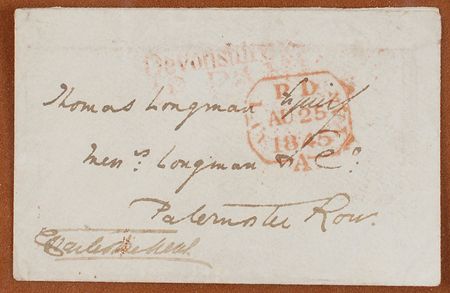 Devonshire
P D
AU 25
1845
A
Thomas Longman Esquire
Mess.rs Longman & Co.
Paternoster Row.
Charles Dickens